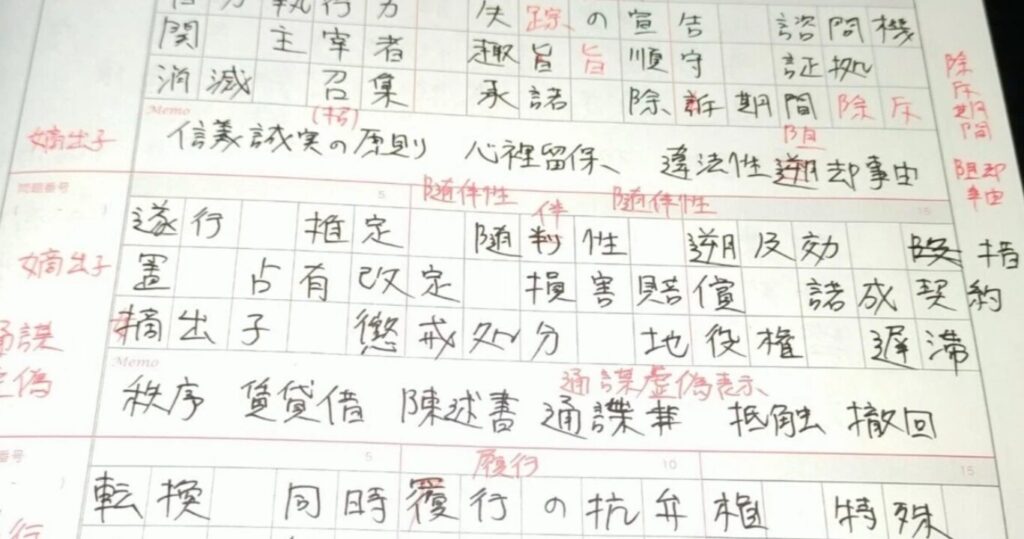 執行力 失踪の宣告 諮問機
関 主宰者 趣旨 旨 順守 証拠
消滅 召集 承諸 除斥期間 除斥
除斥期間
Memo
(招)
嫡出子 信義誠実の原則 心裡留保、 違法性遡却事由
阻
阻却事由
問題番号 5 随伴性 伴 随伴性 15
遂行 推定 随判性 遡及効 措
嫡出子 置 占有改定 損害賠償 諸成契約
摘出子 懲戒処分 地役権 遅滞
通謀
虚偽
Memo
通謀虚偽表示
秩序 賃貸借 陳述書 通謀 抵触 撤回
番号 5 履行 10 15
転換 同時覆行の抗弁権 特殊
行